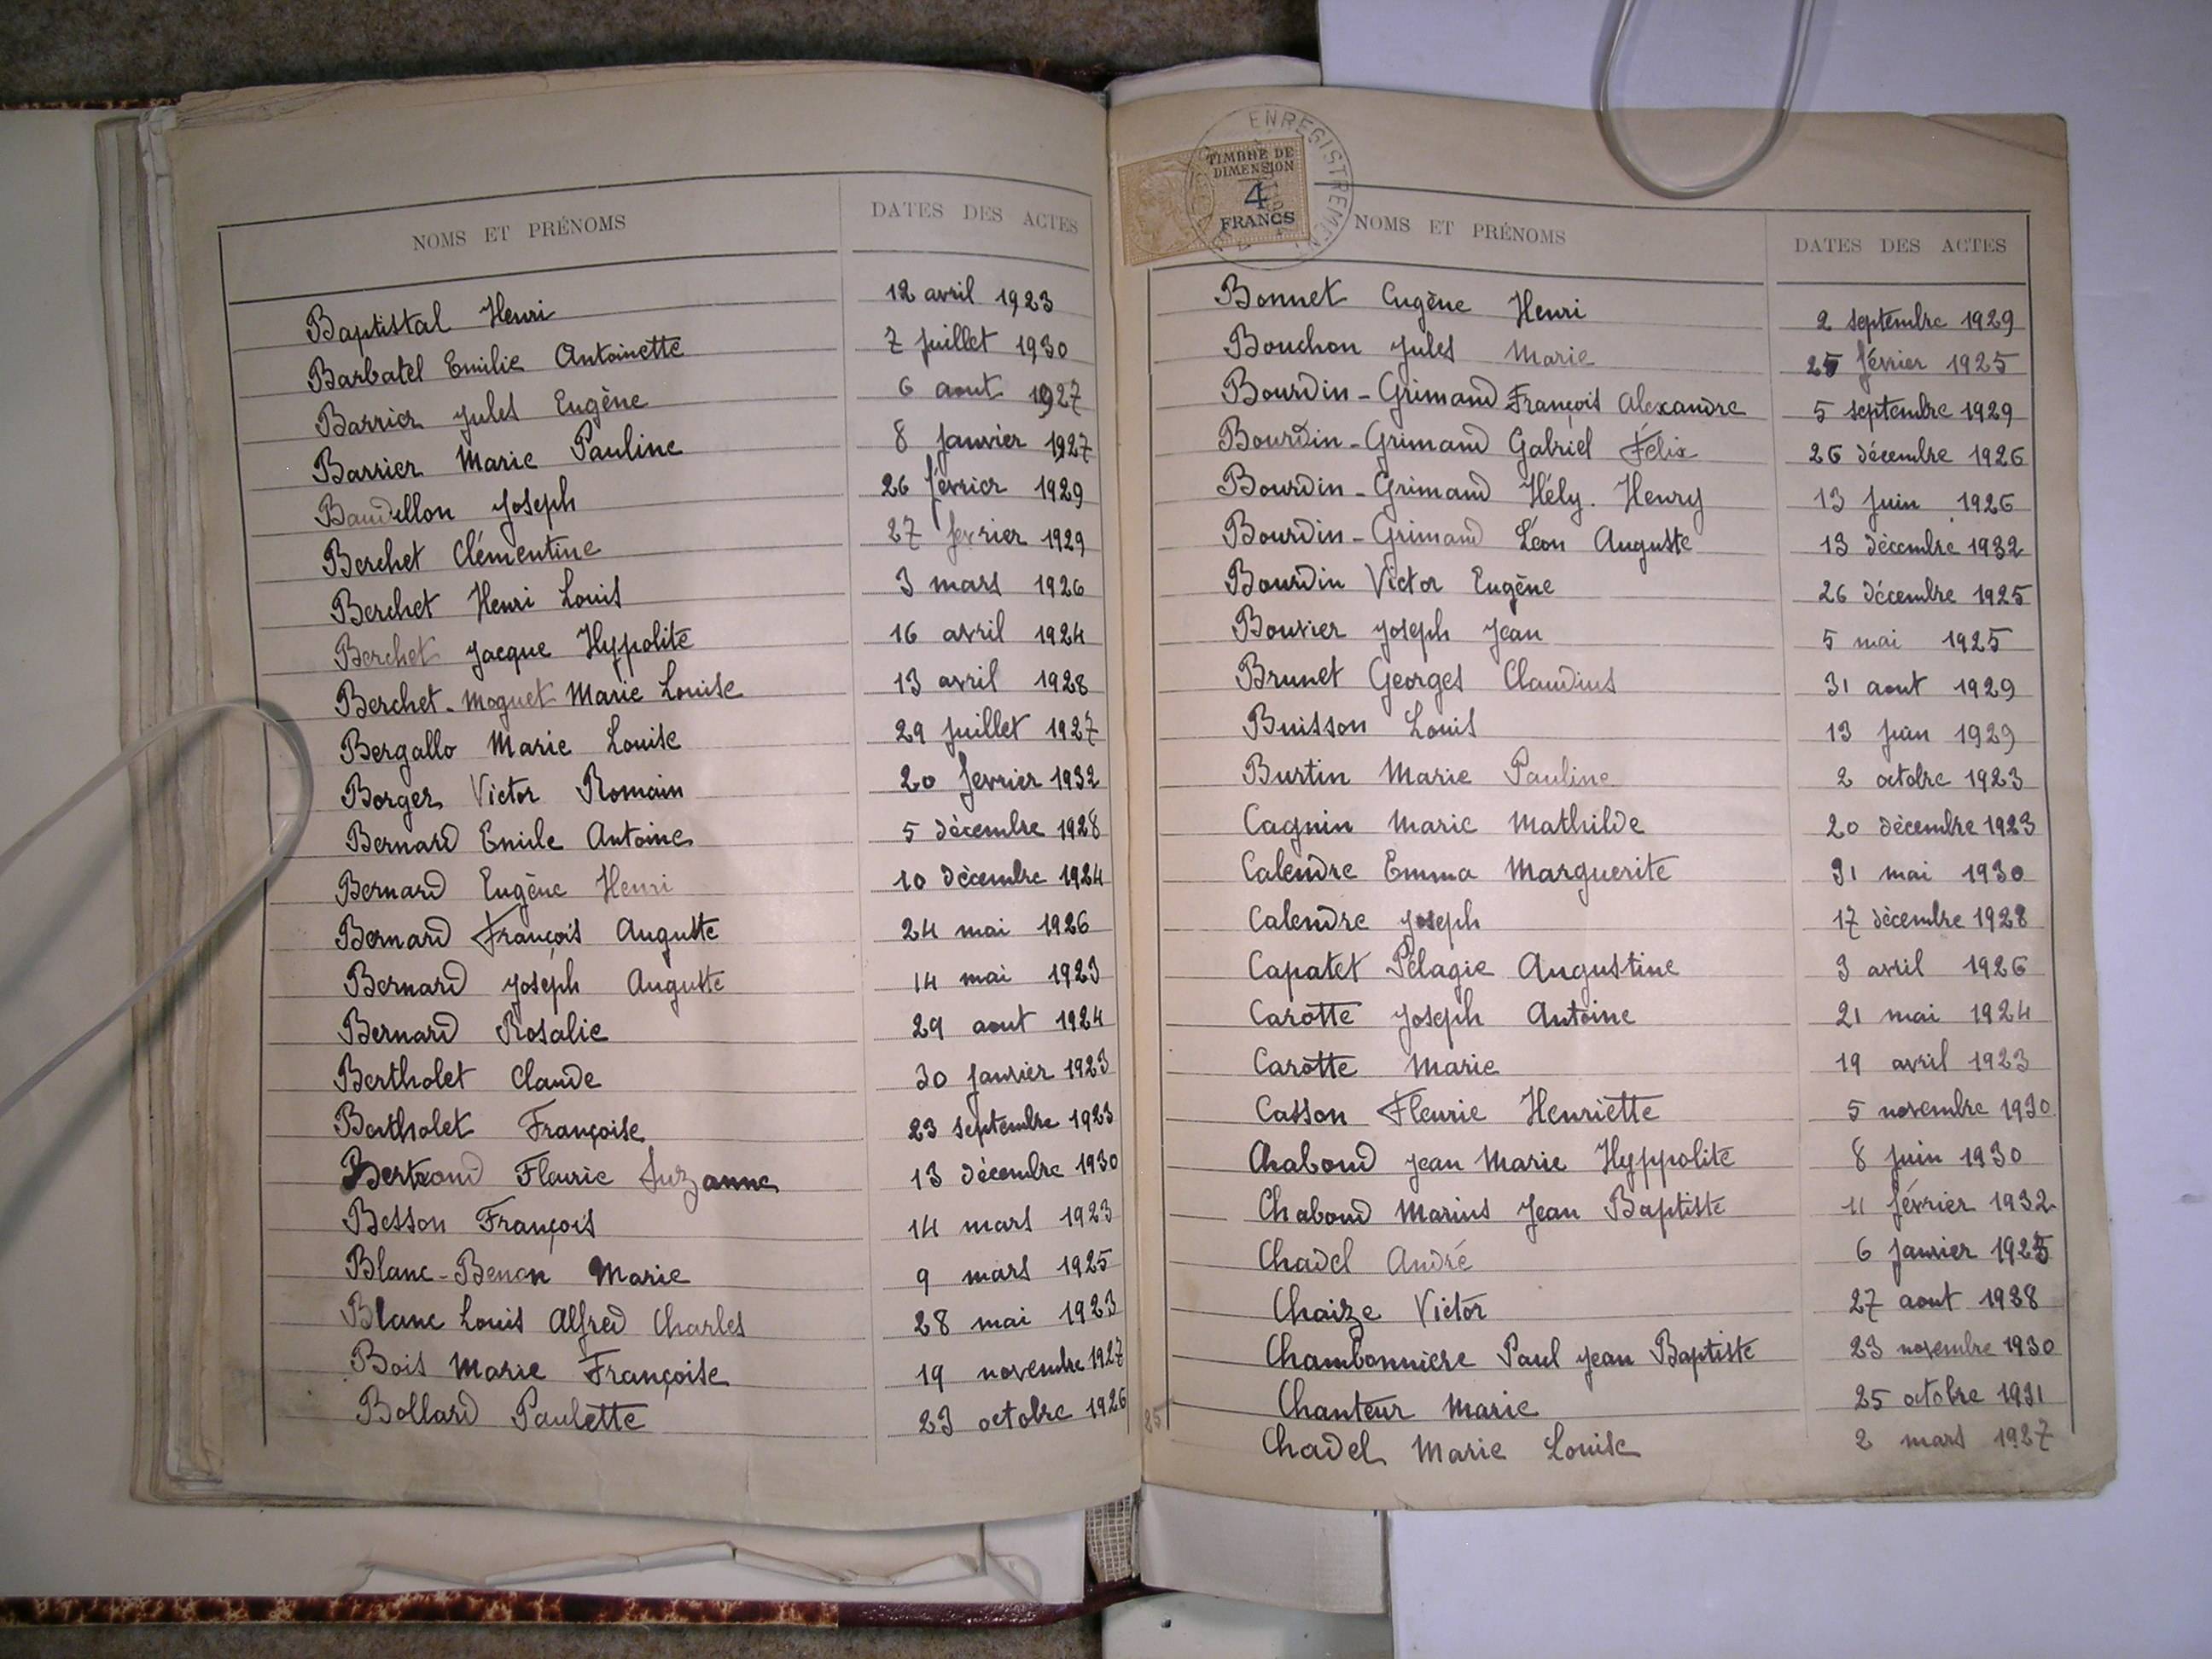 NOMS ET PRÉNOMS DATES DES ACTES
Baptistal Henri 12 avril 1923
Barbatel Emilie Antoinette 7 juillet 1930
Barrier Jules Eugène 6 aout 1927
Barrier Marie Pauline 8 janvier 1927
Baudillon Joseph 26 février 1929
Berchet Clémentine 27 fevrier 1929
Berchet Henri Louis 3 mars 1926
Berchet Jacque Hyppolite 16 avril 1924
Berchet-Moguet Marie Louise 13 avril 1928
Bergallo Marie Louise 29 juillet 1927
Berger Victor Romain 20 fevrier 1932
Bernard Emile Antoine 5 décembre 1928
Bernard Eugène Henri 10 décembre 1924
Bernard François Auguste 24 mai 1926
Bernard Joseph Auguste 14 mai 1923
Bernard Rosalie 29 aout 1924
Bertholet Claude 30 janvier 1923
Bertholet Françoise 23 septembre 1923
Bertrand Fleurie Suzanne 13 décembre 1930
Besson François 14 mars 1923
Blanc-Benon Marie 9 mars 1925
Blanc Louis Alfred Charles 28 mai 1923
Bois Marie Françoise 19 novembre 1927
Bollard Paulette 23 octobre 1926
ENREGISTREMENT
TIMBRE DE
DIMENSION
4
FRANCS
NOMS ET PRÉNOMS DATES DES ACTES
Bonnet Eugène Henri 2 septembre 1929
Bouchon Jules Marie 25 février 1925
Bourdin-Grimaud François Alexandre 5 septembre 1929
Bourdin-Grimaud Gabriel Félix 26 décembre 1926
Bourdin-Grimaud Hély. Henry 13 juin 1926
Bourdin-Grimaud Léon Auguste 13 décembre 1932
Bourdin Victor Eugène 26 décembre 1925
Bouvier Joseph Jean 5 mai 1925
Brunet Georges Claudius 31 aout 1929
Buisson Louis 13 juin 1929
Burtin Marie Pauline 2 octobre 1923
Cagnin Marie Mathilde 20 décembre 1923
Calendre Emma Marguerite 31 mai 1930
Calendre Joseph 17 décembre 1928
Capatet Pélagie Augustine 3 avril 1926
Carotte Joseph Antoine 21 mai 1924
Carotte Marie 19 avril 1923
Casson Fleurie Henriette 5 novembre 1930
Chaboud Jean Marie Hyppolite 8 juin 1930
Chaboud Marius Jean Baptiste 11 février 1932
Chadel André 6 janvier 1925
Chaize Victor 27 aout 1928
Chambonniere Paul Jean Baptiste 23 novembre 1930
Chanteur Marie 25 octobre 1931
Chadel Marie Louise 2 mars 1927